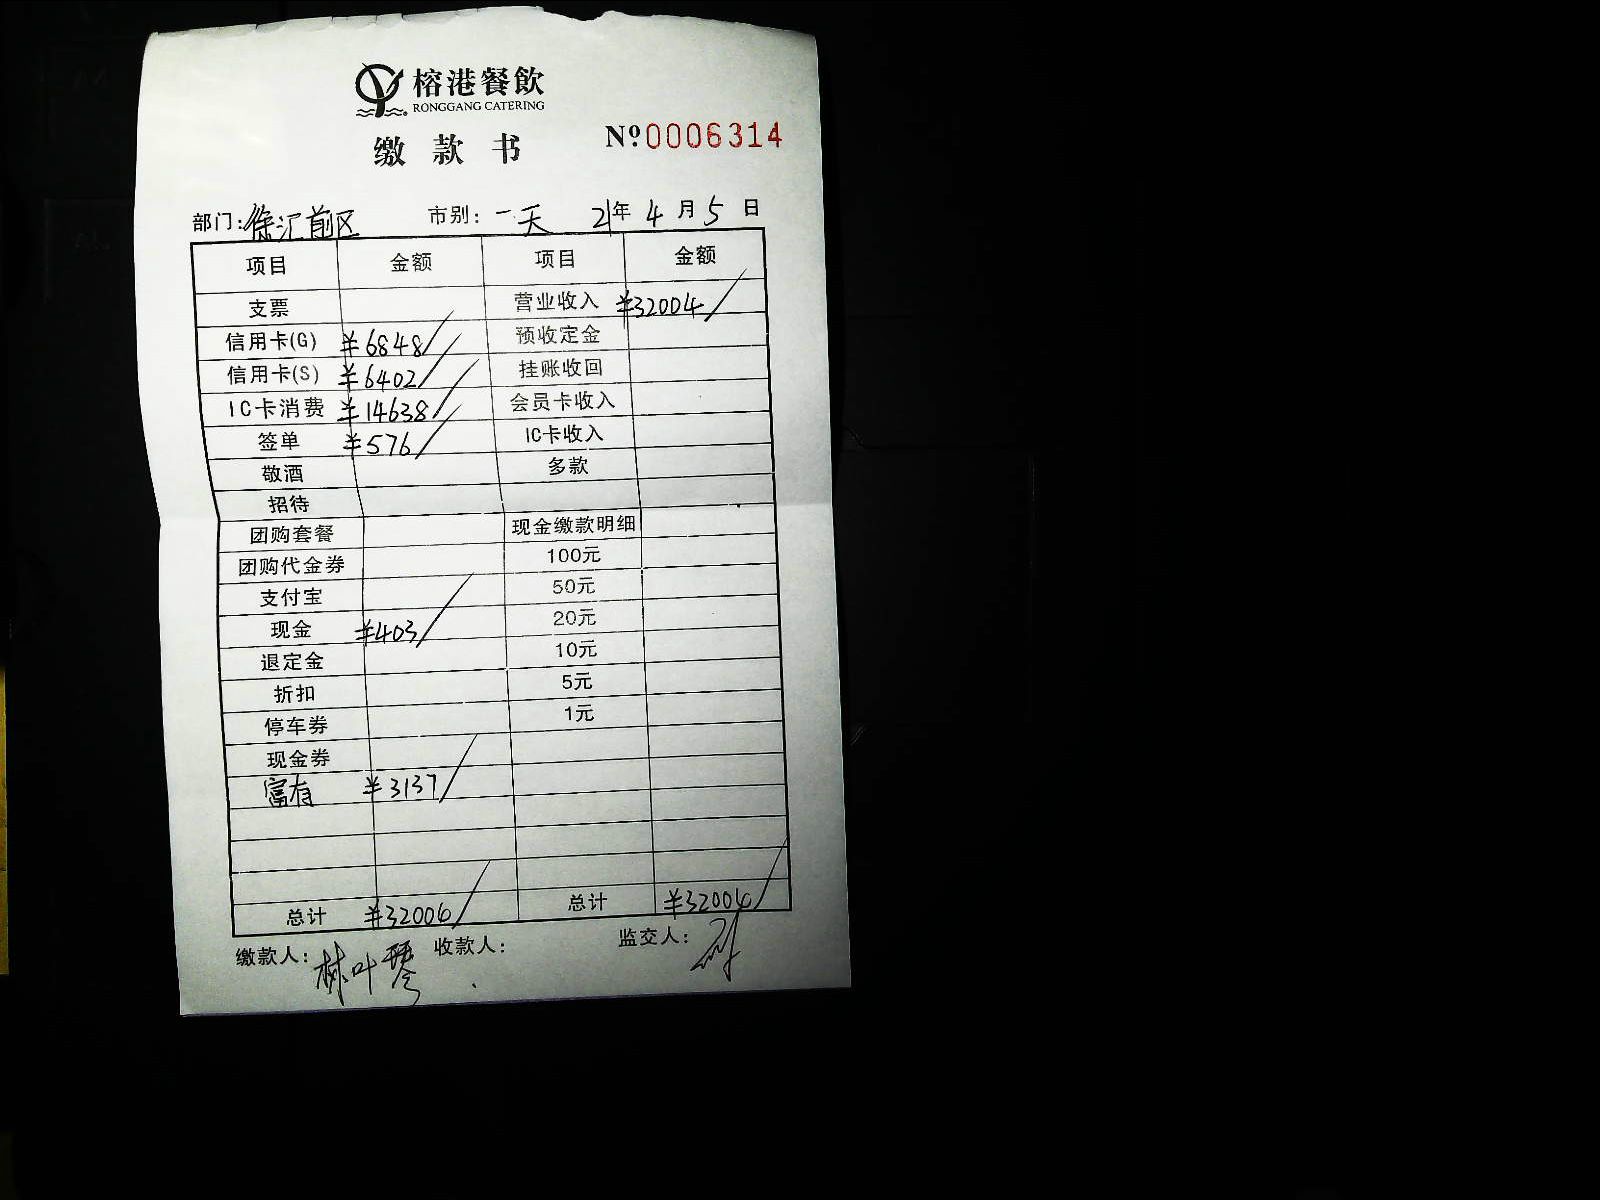 榕港餐飲
RONGGANG CATERING
缴款书
Nº 0006314
部门: 徐汇前区 市别: 一天 21年 4月 5日
项目 金额 项目 金额
支票 营业收入 ¥32004/
信用卡(G) ¥6848/ 预收定金
信用卡(S) ¥6402/ 挂账收回
IC卡消费 ¥14638/ 会员卡收入
签单 ¥576/ IC卡收入
敬酒 多款
招待
团购套餐 现金缴款明细
团购代金券 100元
支付宝 50元
现金 ¥403/ 20元
退定金 10元
折扣 5元
停车券 1元
现金券
富有 ¥3137/
总计 ¥32004/ 总计 ¥32004/
缴款人: 林叶琴 收款人: 监交人: